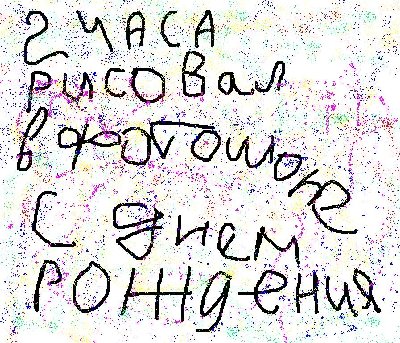 2 ЧАСА
рисовал
в фотошопе
С днем
рождения